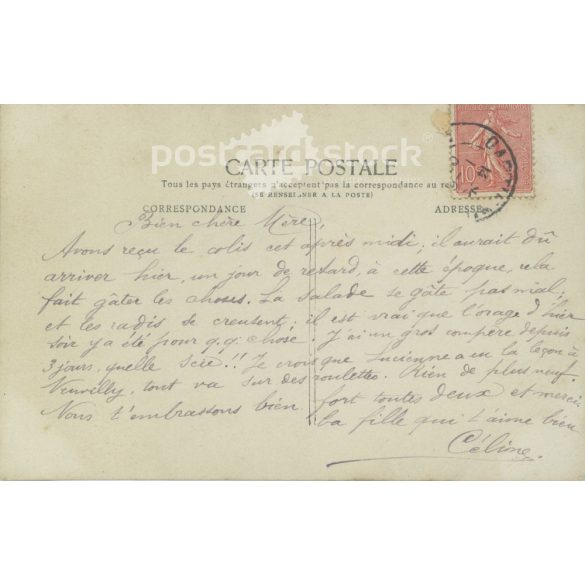 postcardstock
CARTE POSTALE
Tous les pays étrangers n'acceptent pas la correspondance au
(SE RENSEIGNER A LA POSTE)
CORRESPONDANCE
ADRESSE
10
Bien chère Mère,
Avons reçu le colis cet après midi; il aurait dû
arriver hier, un jour de retard, à cette époque, cela
fait gâter les choses. La salade se gâte pas mal,
et les radis se creusent; il est vrai que l'orage d'hier
soir y a été pour q.q. chose. J'ai un gros compère depuis
3 jours, quelle scie!! Je crois que Lucienne a eu la leçon à
Neuvilly, tout va sur des roulettes. Rien de plus neuf.
Nous t'embrassons bien fort toutes deux et merci
la fille qui t'aime bien
Céline.